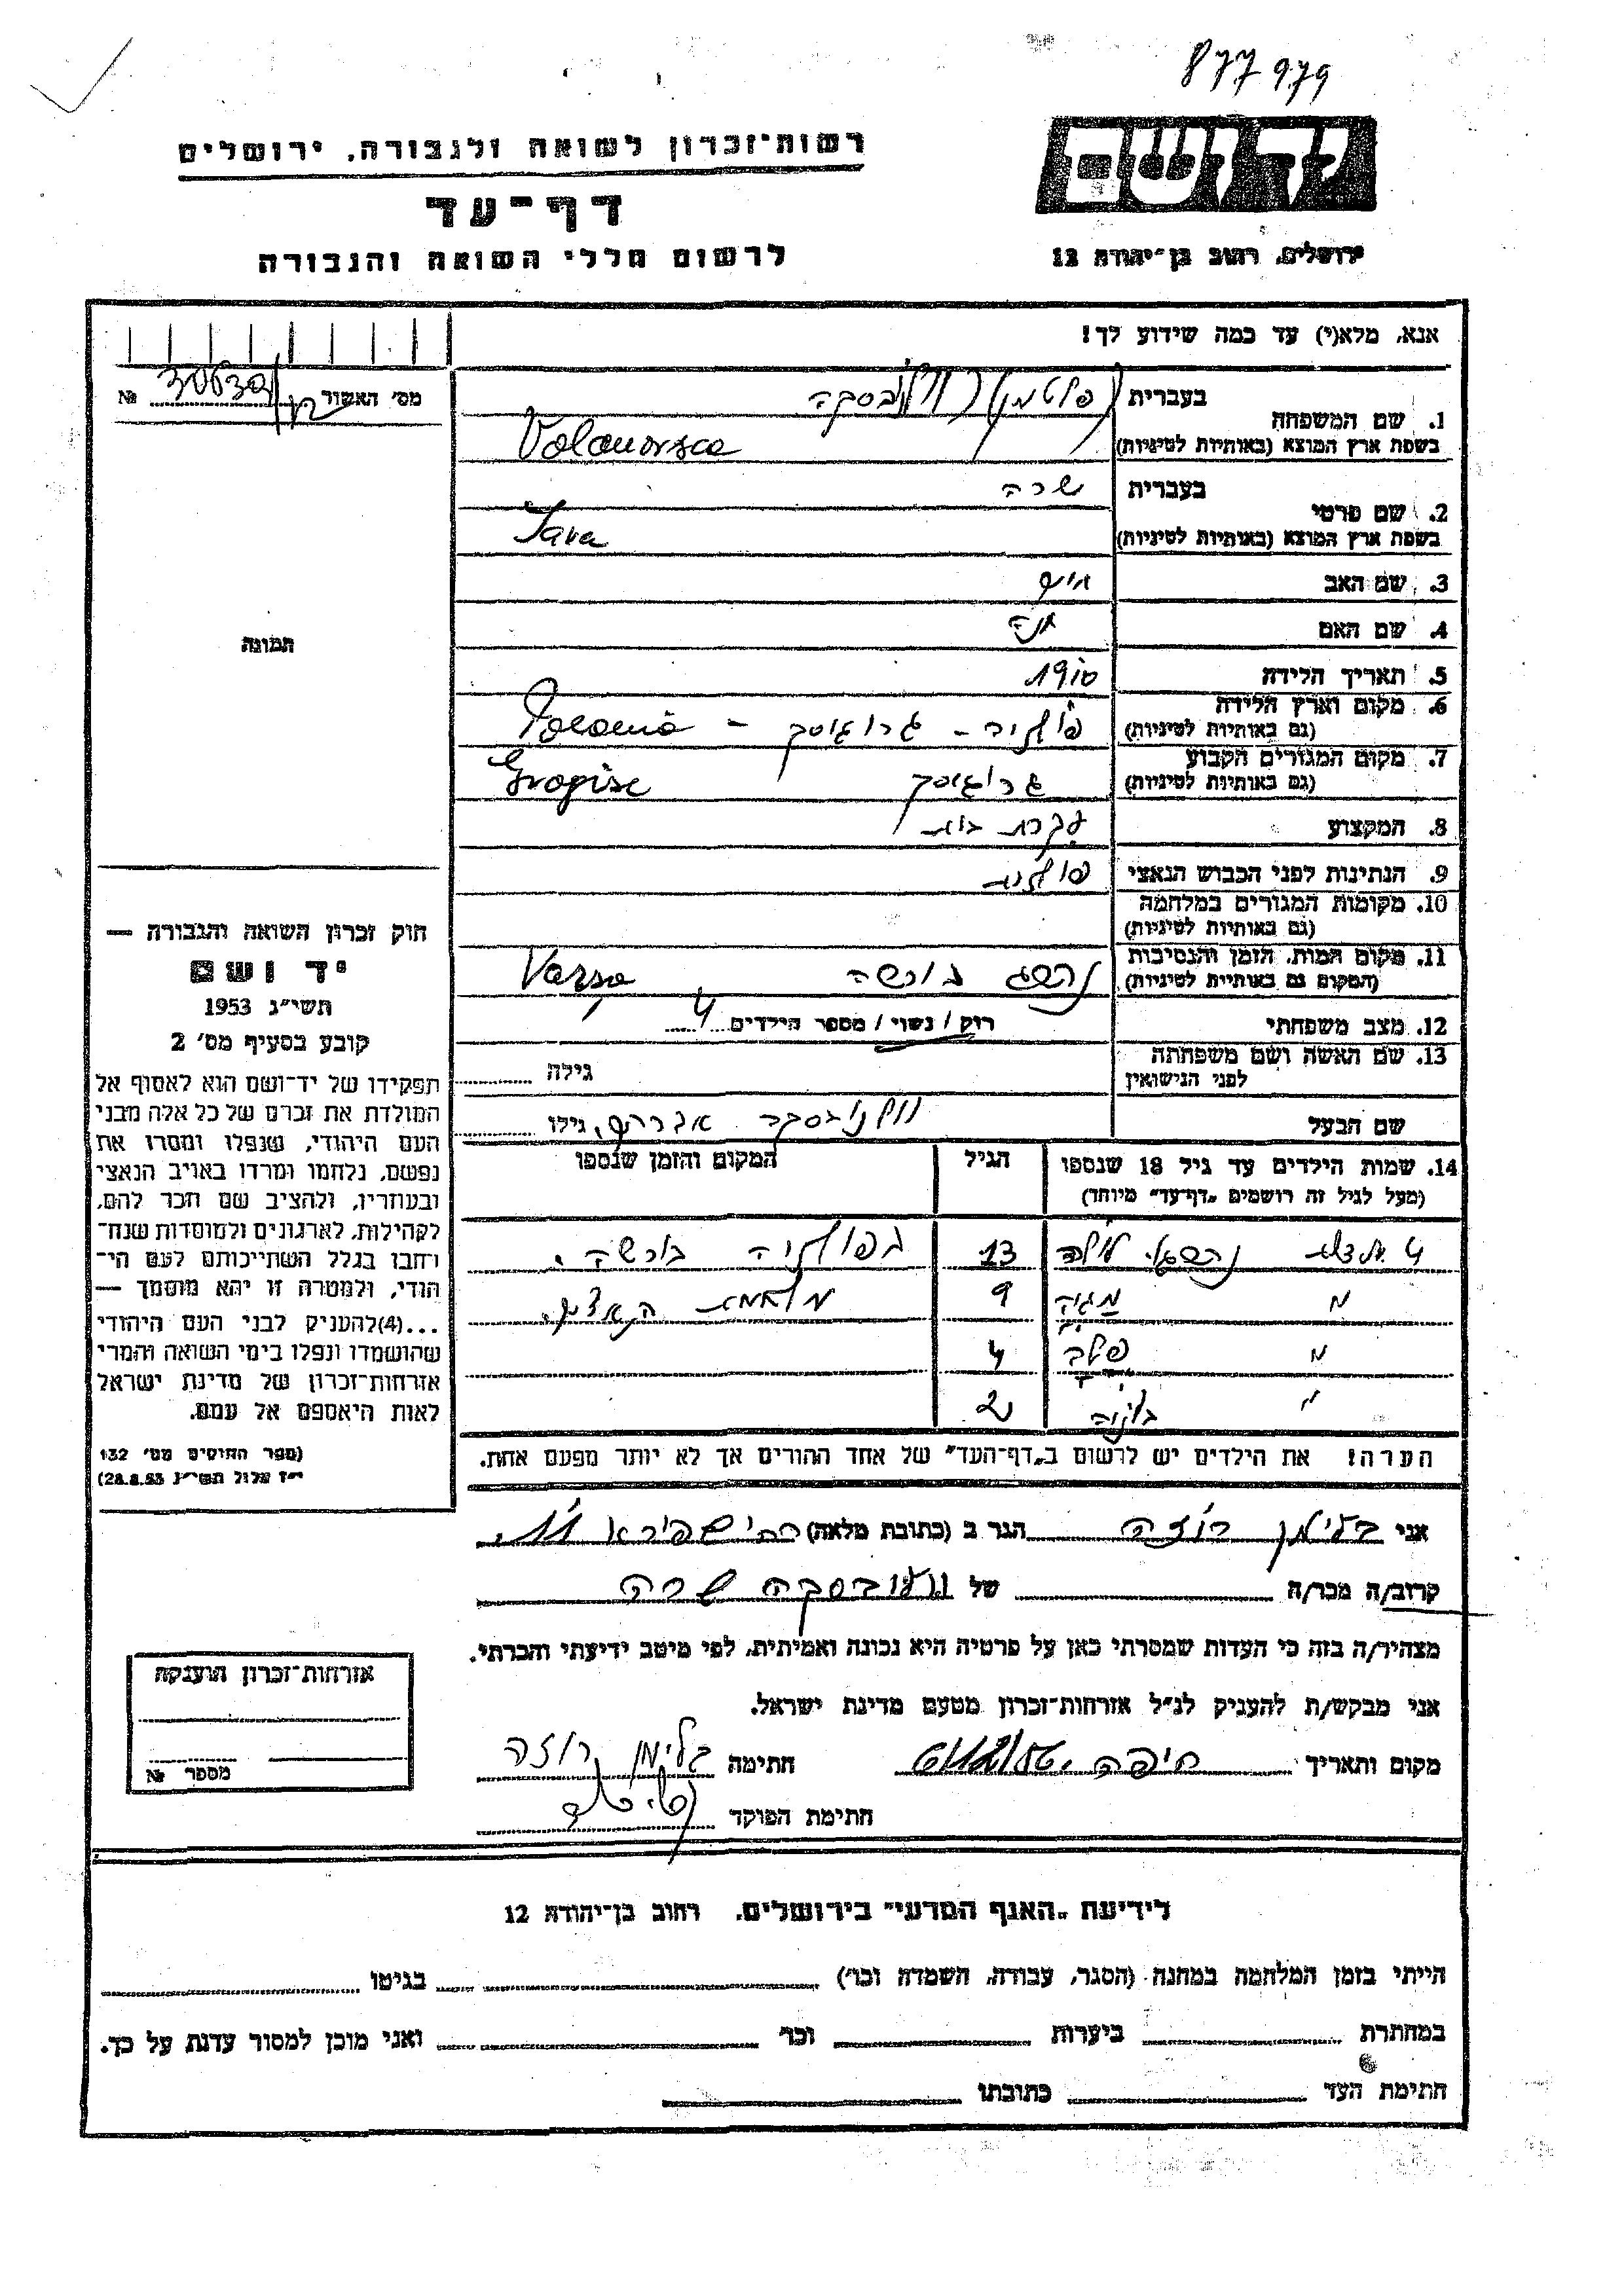 877979
רשות־זכרון לשואה ולגבורה, ירושלים
יד ושם
דף־עד
לרשום חללי השואה והגבורה
ירושלים, רחוב בן־יהודה 12
אנא, מלא(י) עד כמה שידוע לך!
מס' האשור №
1. שם המשפחה
בעברית
בשפת ארץ המוצא (באותיות לטיניות) Volanovsca
2. שם פרטי
בעברית שרה
בשפת ארץ המוצא (באותיות לטיניות) Sara
3. שם האב
4. שם האם חנה
5. תאריך הלידה 1910
6. מקום וארץ הלידה
(גם באותיות לטיניות) פולניה - Polonia -
7. מקום המגורים הקבוע
(גם באותיות לטיניות) Grogisc
8. המקצוע עקרת בית
9. הנתינות לפני הכבוש הנאצי פולנית
10. מקומות המגורים במלחמה
(גם באותיות לטיניות)
11. מקום המות, הזמן והנסיבות
(המקום גם באותיות לטיניות) ורשה Varsa
12. מצב משפחתי רוק / נשוי / מספר הילדים 4
13. שם האשה ושם משפחתה
לפני הנישואין גילה
שם הבעל וולנובסקה אברהם, גילו
14. שמות הילדים עד גיל 18 שנספו
(מעל לגיל זה רושמים „דף־עד" מיוחד)
הגיל
המקום והזמן שנספו
13 בפולניה ורשה.
9
4
2
הערה! את הילדים יש לרשום ב„דף־העד" של אחד ההורים אך לא יותר מפעם אחת.
תמונה
חוק זכרון השואה והגבורה —
יד ושם
תשי"ג 1953
קובע בסעיף מס' 2
תפקידו של יד־ושם הוא לאסוף אל
המולדת את זכרם של כל אלה מבני
העם היהודי, שנפלו ומסרו את
נפשם, נלחמו ומרדו באויב הנאצי
ובעוזריו, ולהציב שם וזכר להם,
לקהילות, לארגונים ולמוסדות שנח־
רחבו בגלל השתייכותם לעם הי־
הודי, ולמטרה זו יהא מוסמך —
...(4)להעניק לבני העם היהודי
שהושמדו ונפלו בימי השואה והמרי
אזרחות־זכרון של מדינת ישראל
לאות היאספם אל עמם.
(ספר החוקים מס' 132
י"ז אלול תשי"ג 28.8.53)
אני בלימן רוזה הגר ב (כתובת מלאה)
קרוב/ה מכר/ה של וולנובסקה שרה
מצהיר/ה בזה כי העדות שמסרתי כאן על פרטיה היא נכונה ואמיתית, לפי מיטב ידיעתי והכרתי.
אני מבקש/ת להעניק לנ"ל אזרחות־זכרון מטעם מדינת ישראל.
מקום ותאריך חיפה חתימה בלימן רוזה
חתימת הפוקד
אזרחות־זכרון הוענקה
מספר №
לידיעת „האגף המדעי" בירושלים, רחוב בן־יהודה 12
הייתי בזמן המלחמה במחנה (הסגר, עבודה, השמדה וכו') בגיטו
במחתרת ביערות וכו' ואני מוכן למסור עדות על כך.
חתימת העד כתובתו